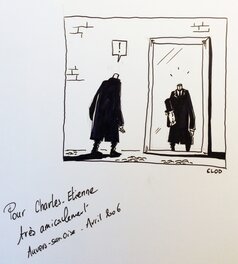 !
ELOD
Pour Charles-Etienne
très amicalement
Auvers-sur-Oise - Avril 2006